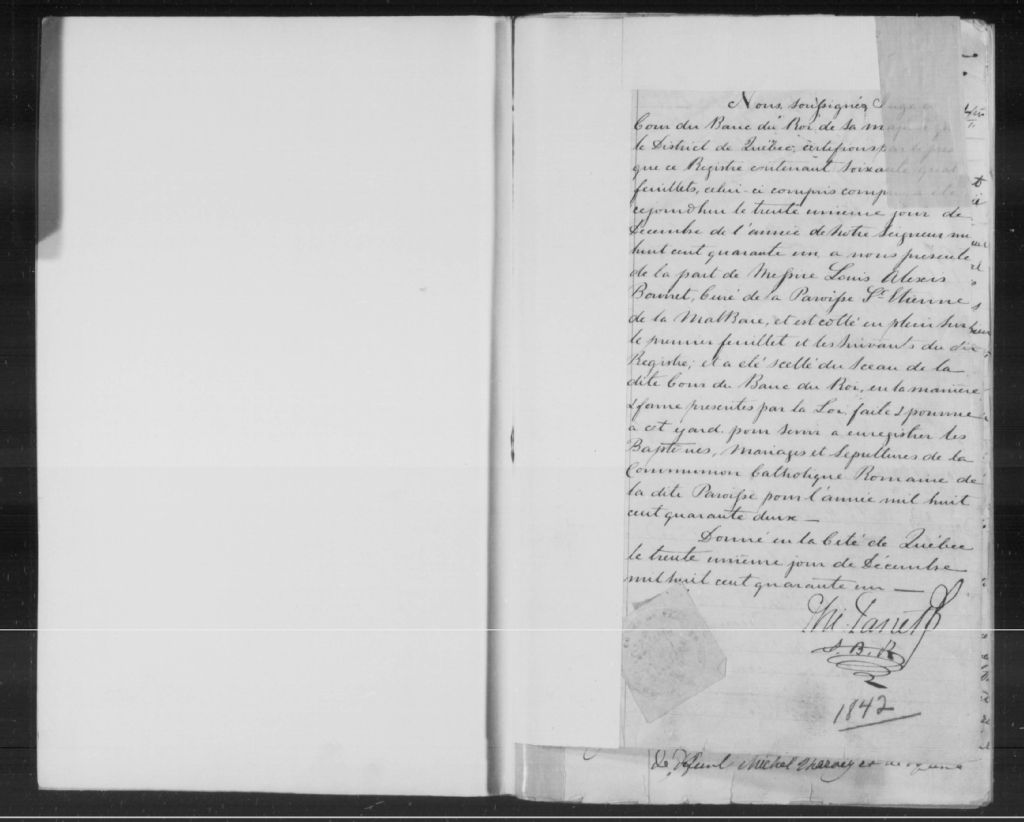 Nous, soussignés Juge
Cour du Banc du Roi, de Sa Maj
le District de Québec, certifions par
que ce Registre contenant soixante
feuillets, celui-ci compris comp
cejourdhui le trente unieme jour de
Decembre de l'année de notre Seigneur mil
huit cent quarante un, a nous presenté
de la part de Messire Louis Alexis
Bourret, Curé de la Paroisse St Etienne
de la MalBaie, et est cotté en plein sur
le premier feuillet et les suivants du dit
Registre; et a été scellé du Sceau de la
dite Cour du Banc du Roi, en la manière
& forme presentes par la Loi faite & pourvue
a cet egard pour servir a enregistrer les
Baptemes, Mariages et Sepultures de la
Communion Catholique Romaine de
la dite Paroisse pour l'année mil huit
cent quarante deux —
Donné en la Cité de Québec
le trente unieme jour de Décembre
mil huit cent quarante un —
J. B. R
1842
de defunt Michel